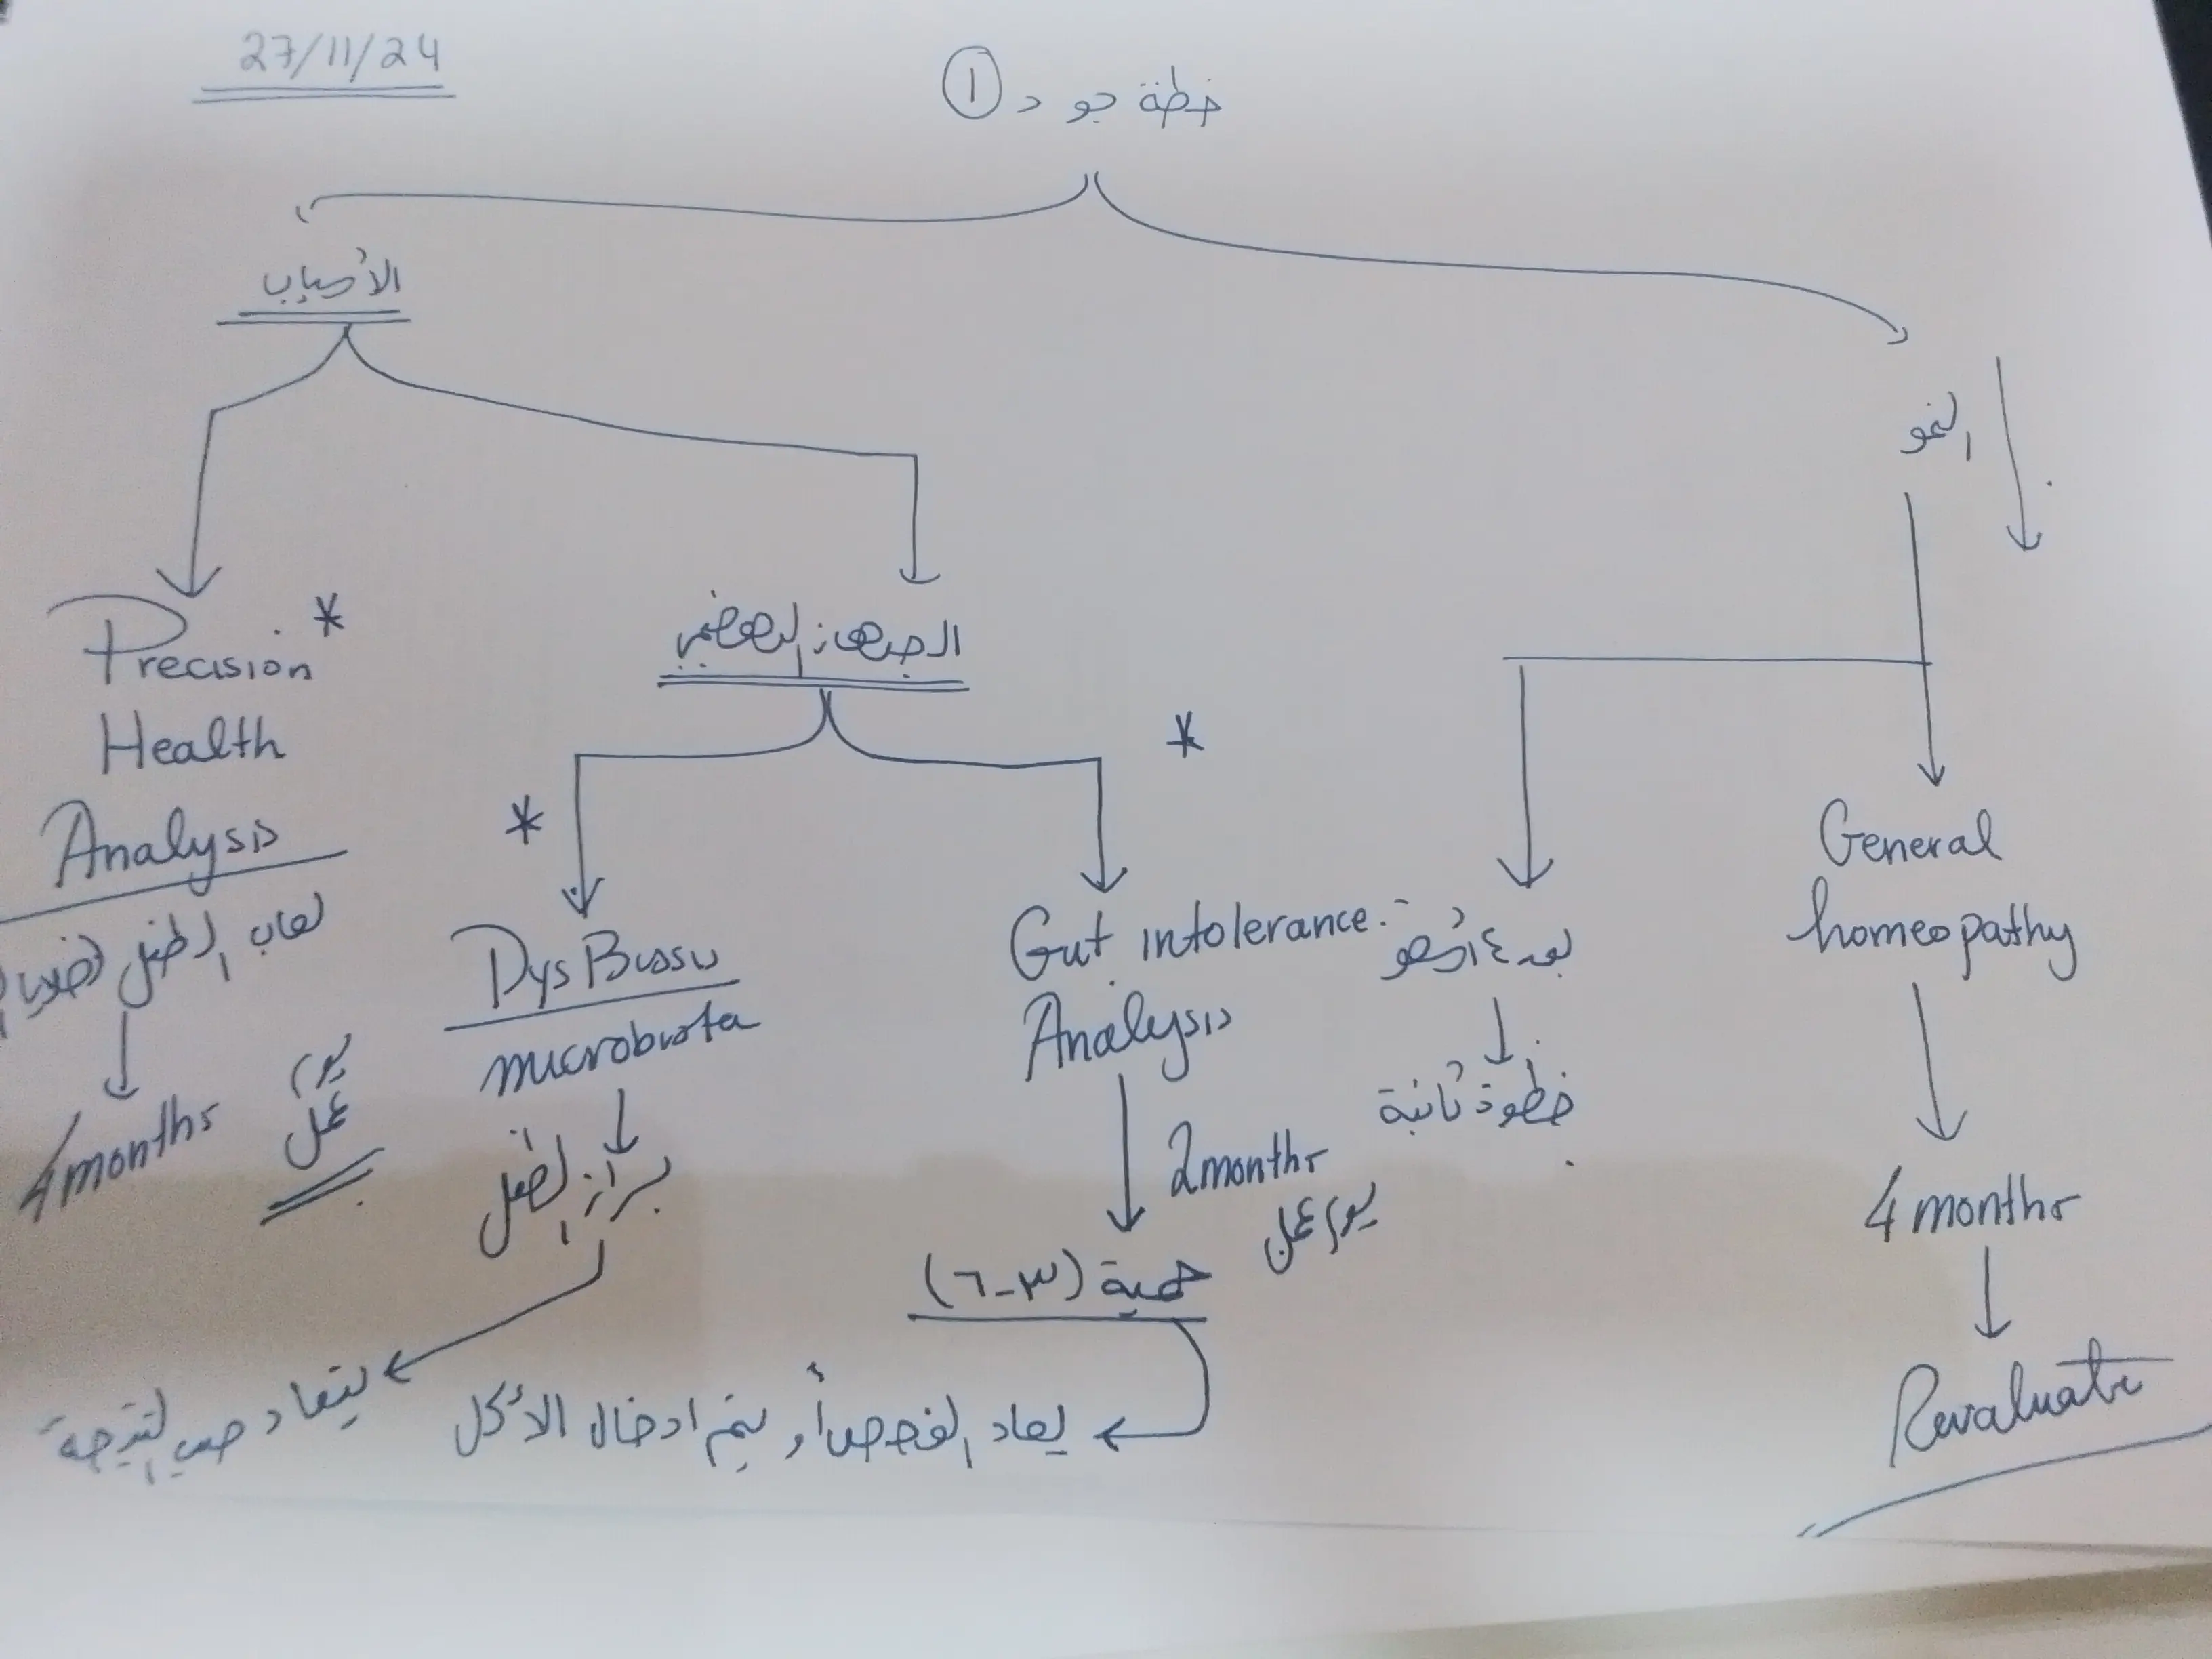 27/11/24
خطة جود ①
الأسباب
النمو
Precision *
Health
Analysis
لعاب الطفل
4 months
يوم
عمل
الجهاز الهضمي
*
*
DysBiosis
microbiota
براز الطفل
Gut intolerance
Analysis
2 months
يوم عمل
حمية (٣-٦)
يعاد الفحص أو يتم ادخال الأكل
حسب النتيجة
بعد ٤ أشهر
خطوة ثانية
General
homeopathy
4 months
Revaluate